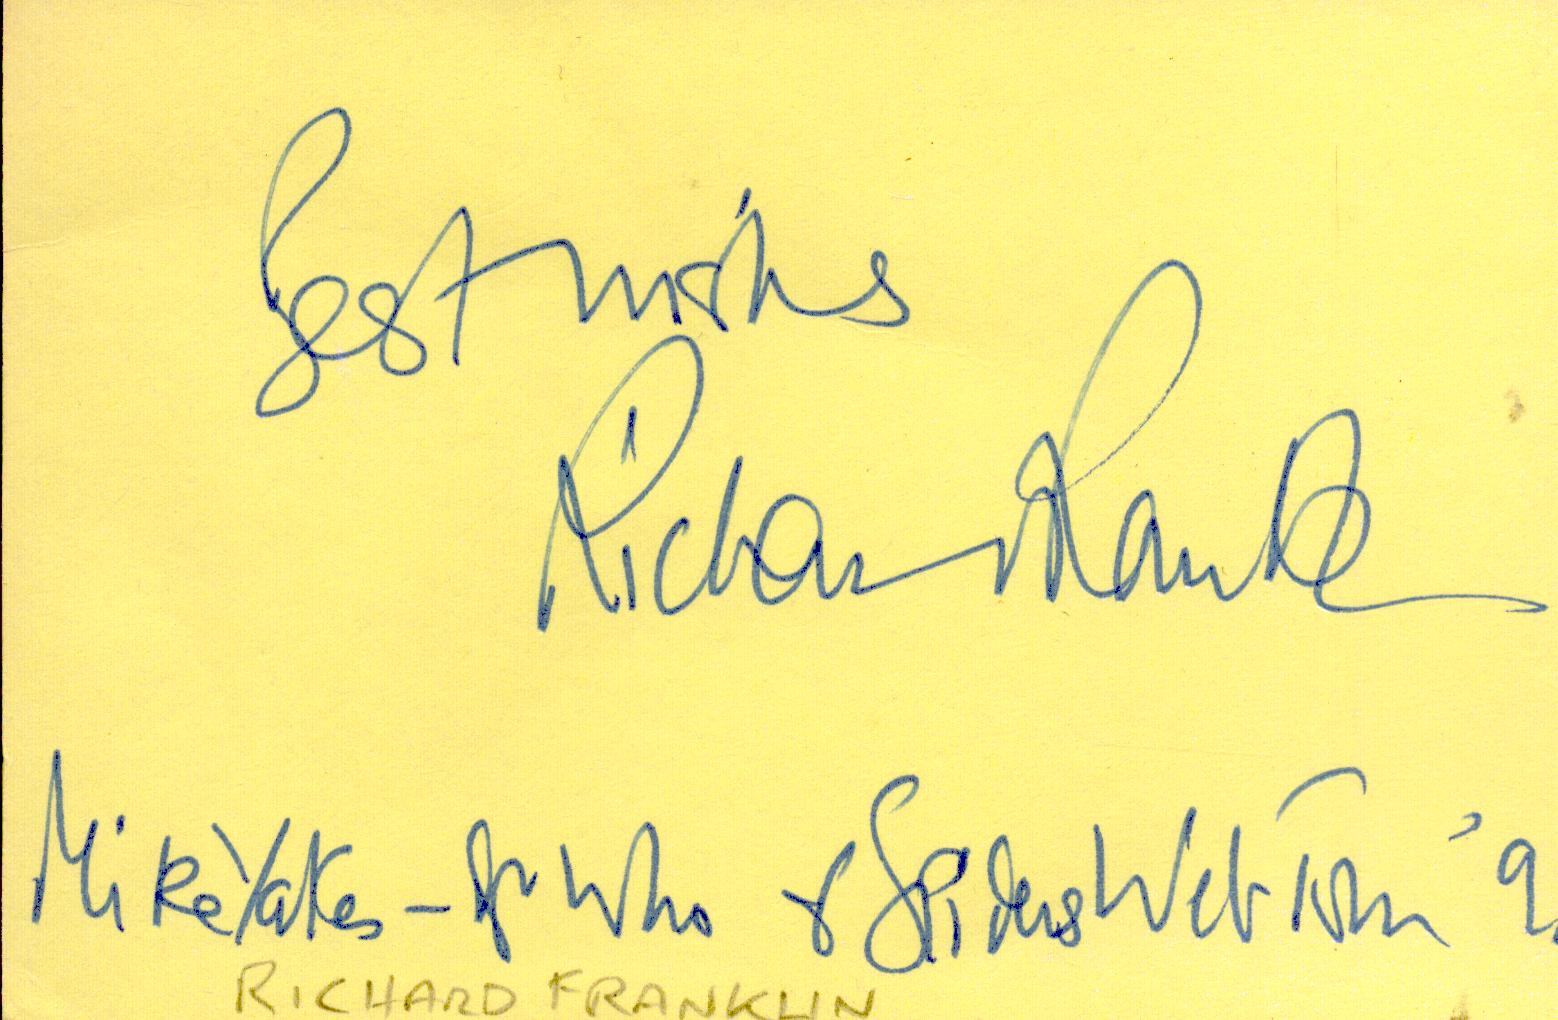 Best wishes
Richard Franklin
Mike Yates - Dr Who & Spiders Web Tour '9
RICHARD FRANKLIN